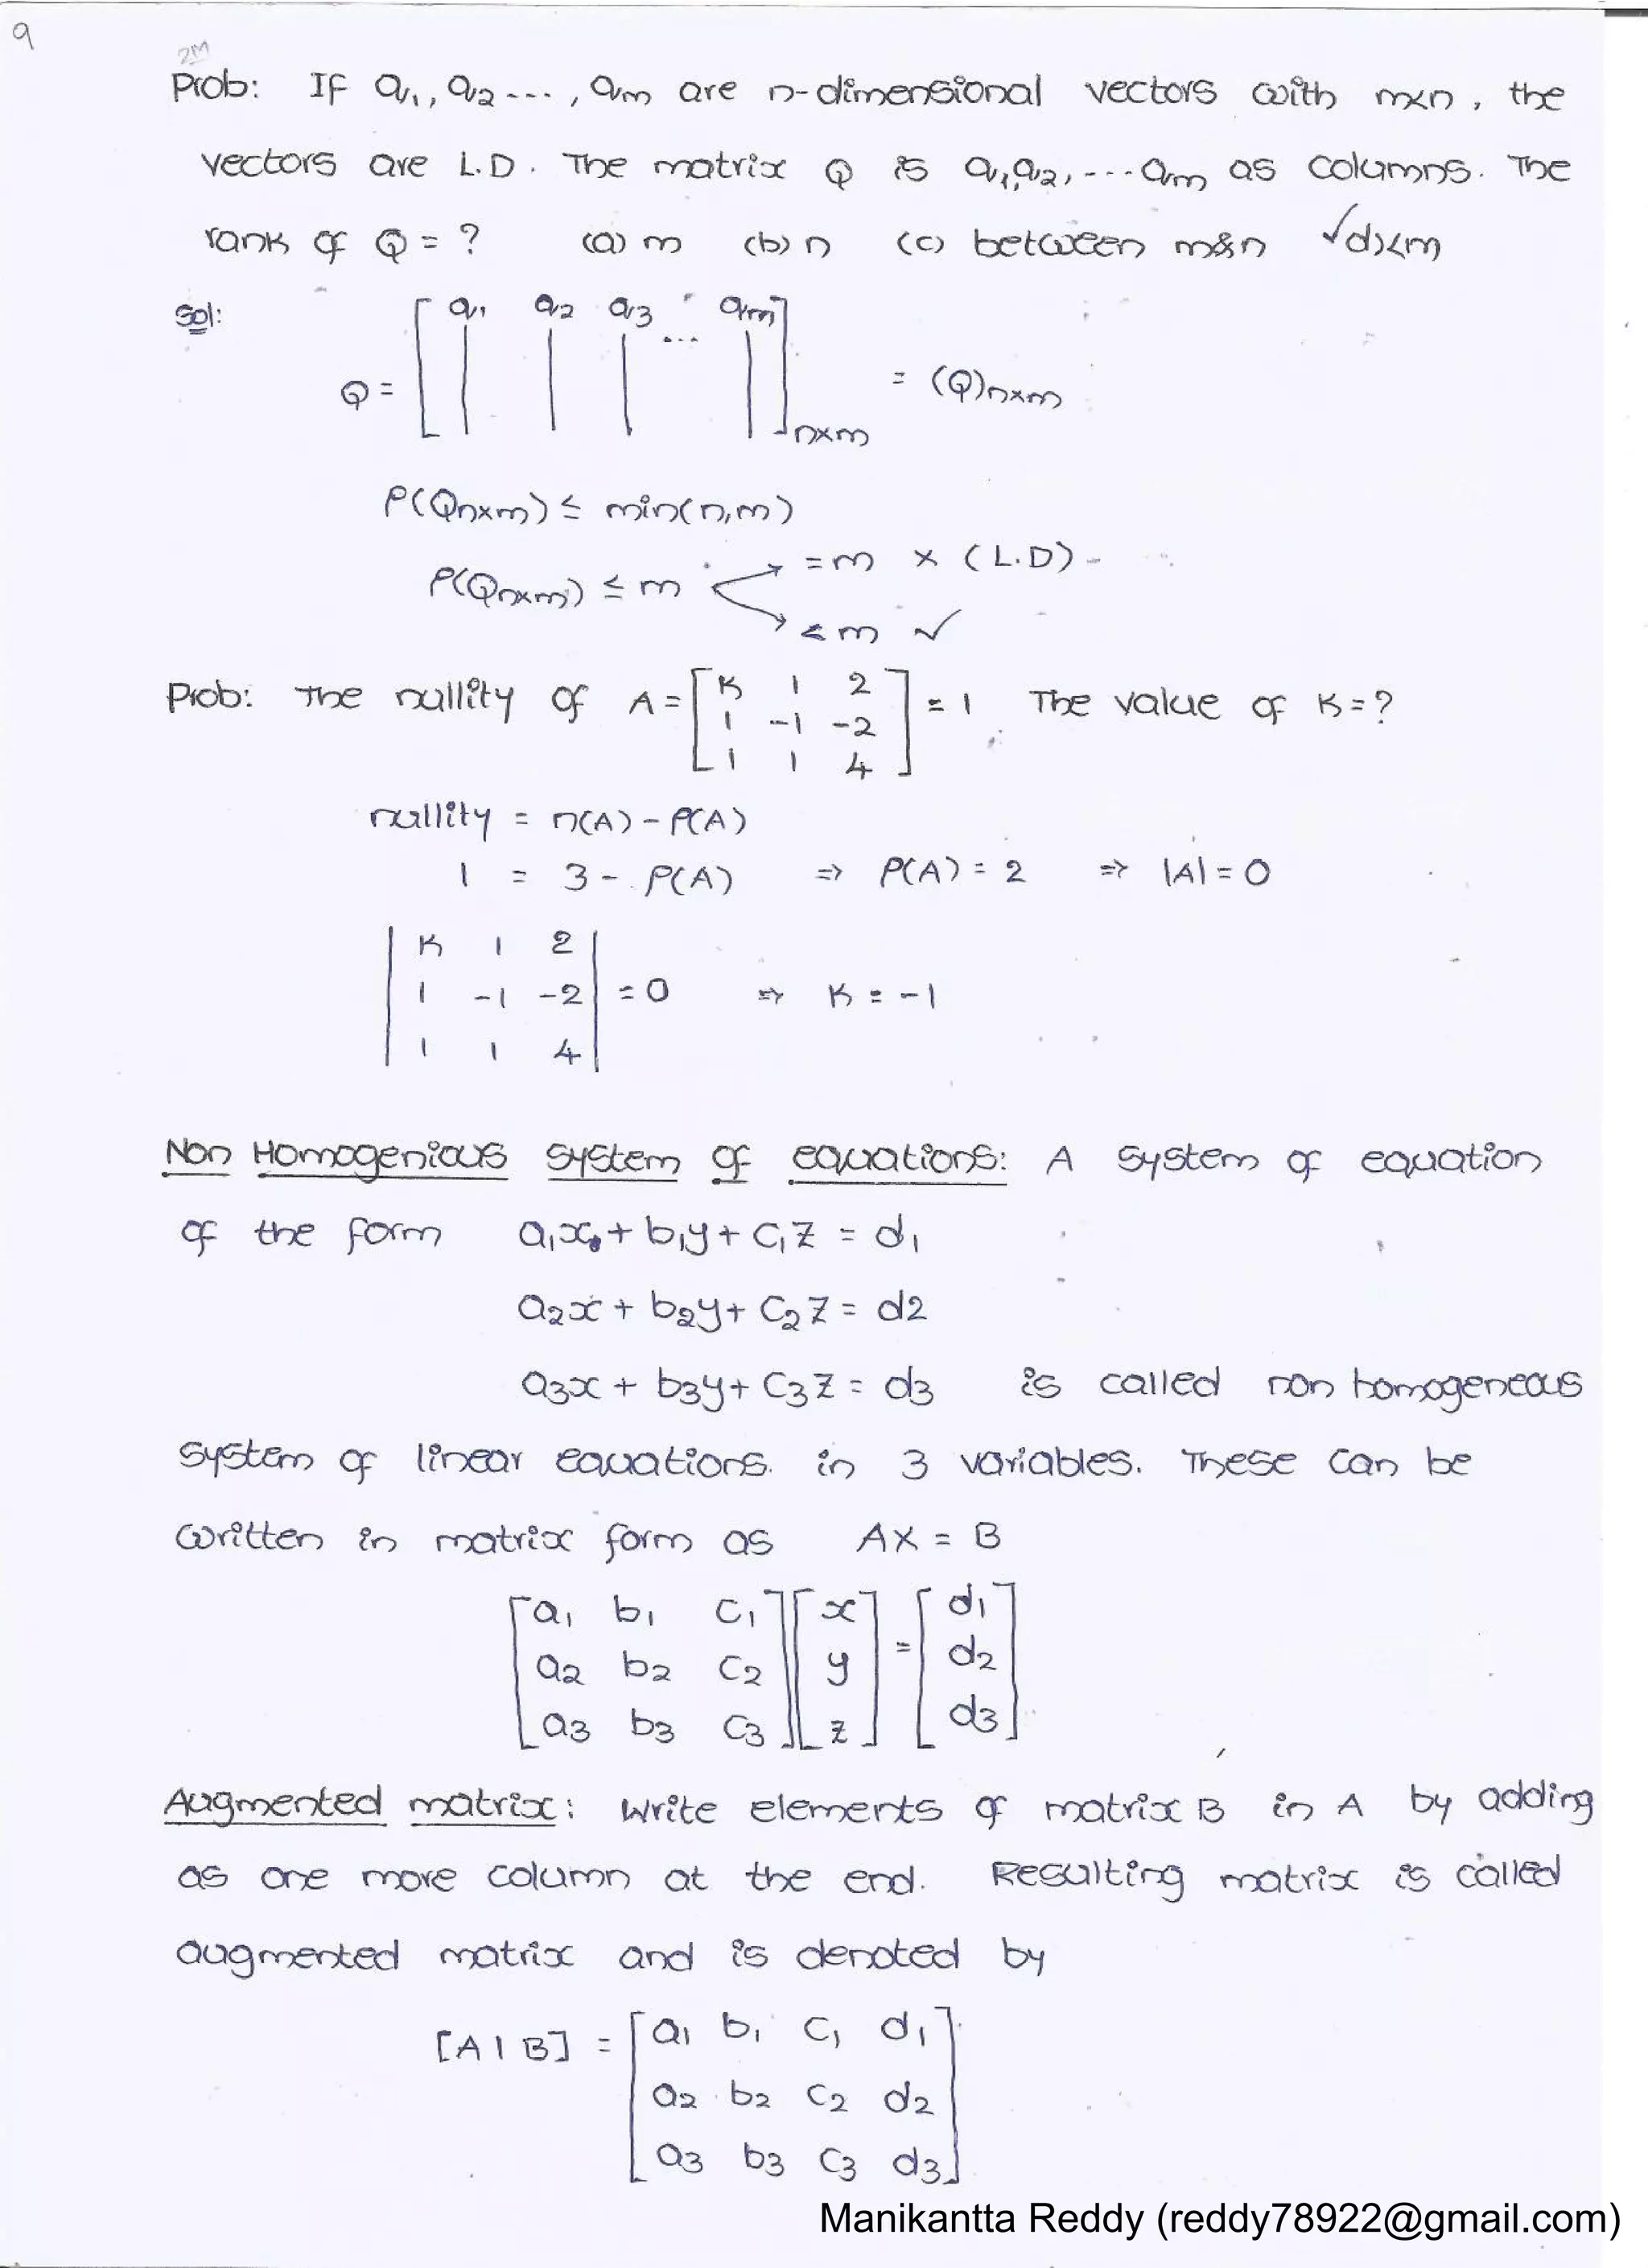 9
2M
Prob: If q1, q2 ---, qm are n-dimensional vectors with m<n, the
vectors are L.D. The matrix Q is q1,q2, ---qm as columns. The
rank of Q = ? (a) m (b) n (c) between m&n ✓d)<m
Sol:
q1 q2 q3 ... qm
Q = [ | | | | ]n×m = (Q)n×m
ρ(Qn×m) ≤ min(n,m)
= m × (L.D)
ρ(Qn×m) ≤ m
< m ✓
Prob: The nullity of A = [K 1 2 = 1 The value of K = ?
1 -1 -2
1 1 4]
nullity = n(A) - ρ(A)
1 = 3 - ρ(A) ⇒ ρ(A) = 2 ⇒ |A| = 0
|K 1 2|
|1 -1 -2| = 0 ⇒ K = -1
|1 1 4|
Non Homogenious system of equations: A system of equation
of the form a1x + b1y + c1z = d1
a2x + b2y + c2z = d2
a3x + b3y + c3z = d3 is called non homogeneous
system of linear equations. in 3 variables. These can be
written in matrix form as AX = B
[a1 b1 c1] [x] [d1]
[a2 b2 c2] [y] = [d2]
[a3 b3 c3] [z] [d3]
Augmented matrix: Write elements of matrix B in A by adding
as one more column at the end. Resulting matrix is called
augmented matrix and is denoted by
[A | B] = [a1 b1 c1 d1
a2 b2 c2 d2
a3 b3 c3 d3]
Manikantta Reddy (reddy78922@gmail.com)